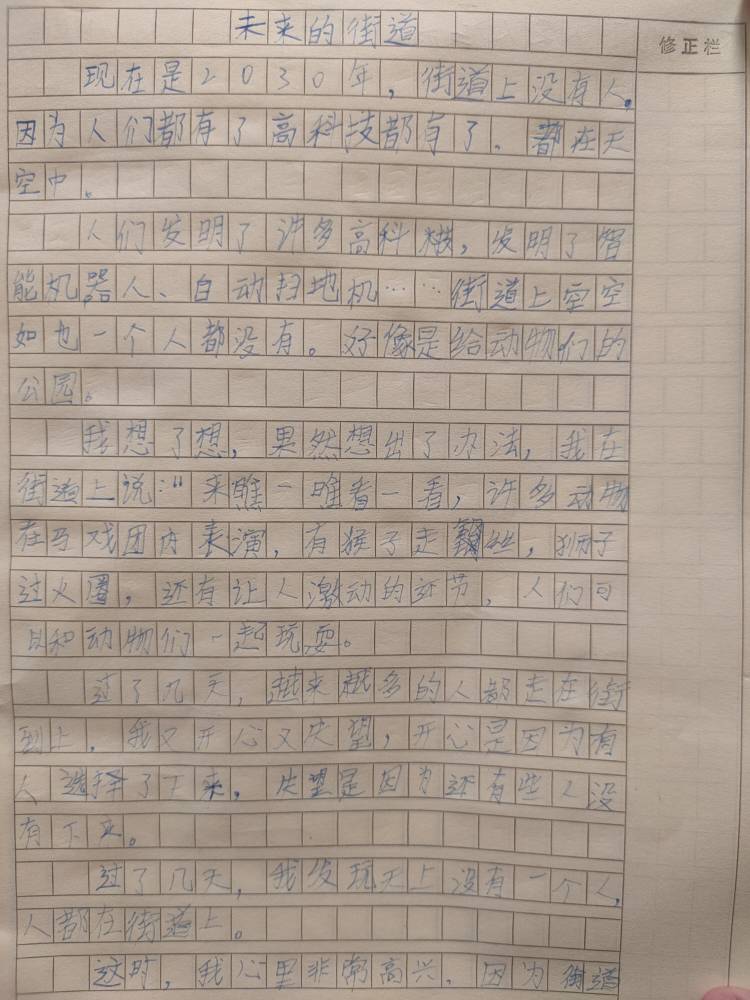 未来的街道
修正栏
现在是2030年,街道上没有人。
因为人们都有了高科技都有了、都在天
空中。
人们发明了许多高科技,发明了智
能机器人、自动扫地机……街道上空空
如也一个人都没有。好像是给动物们的
公园。
我想了想,果然想出了办法,我在
街道上说:“来瞧一瞧看一看,许多动物
在马戏团内表演,有猴子走钢丝,狮子
过火圈,还有让人激动的环节,人们可
以和动物们一起玩耍。
过了几天,越来越多的人都走在街
到上,我又开心又失望,开心是因为有
人选择了下来,失望是因为还有些人没
有下来。
过了几天,我发现天上没有一个人,
人都在街道上。
这时,我心里非常高兴,因为街道